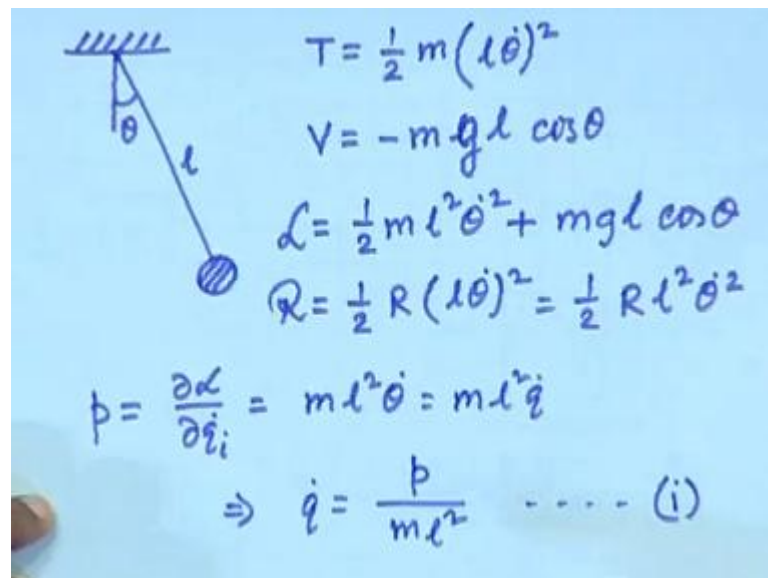 θ
l
T = 1/2 m (lθ̇)²
V = - mgl cosθ
ℒ = 1/2 ml²θ̇² + mgl cosθ
ℛ = 1/2 R (lθ̇)² = 1/2 R l²θ̇²
p = ∂ℒ/∂q̇ᵢ = ml²θ̇ = ml²q̇
⇒ q̇ = p/ml² ..... (i)